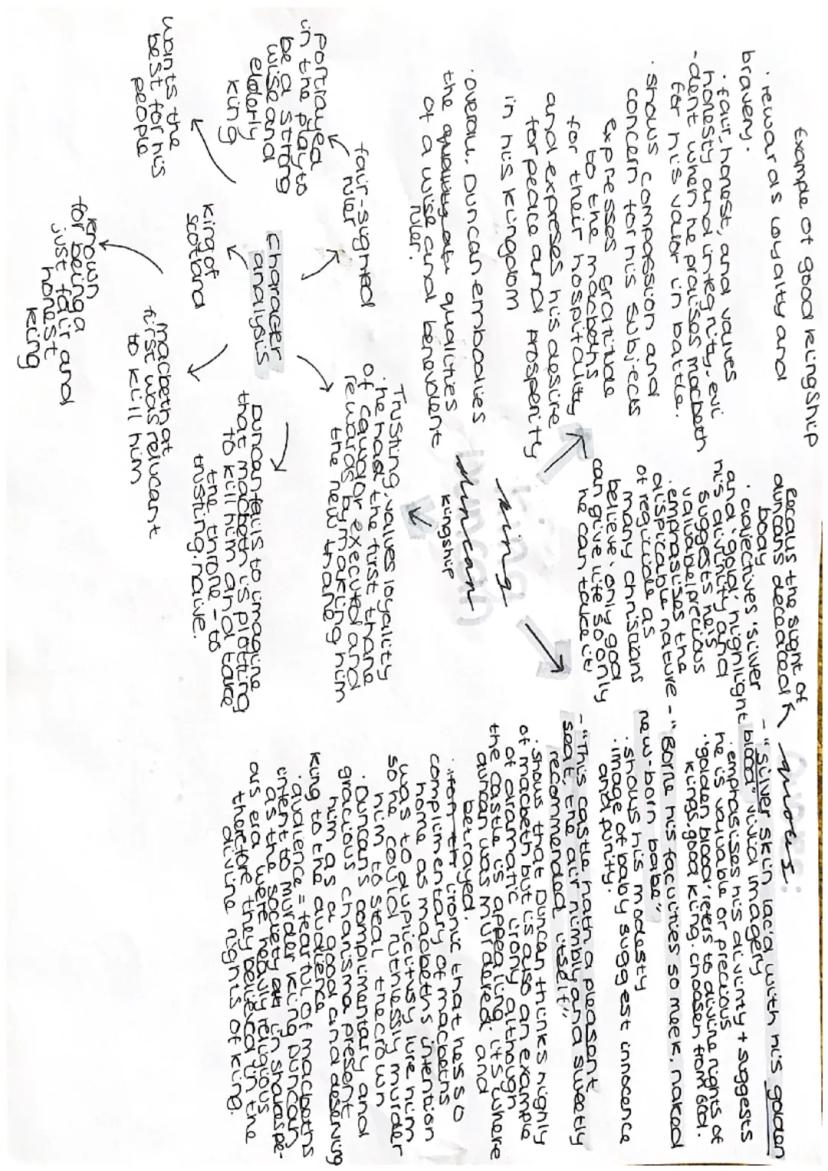 king
duncan
kingship
Example of good kingship
· rewards loyalty and
bravery.
· fair, honest, and values
honesty and integrity - evi
-dent when he praises macbeth
for his valor in battle.
· shows compassion and
concern for his subjects
expresses gratitude
to the macbeths
for their hospitality
and expreses his desire
for peace and prosperity
in his kingdom
· overall, Duncan embodies
the qualities
of a wise and benevolent
ruler.
character
analysis
fair-sighted
ruler
portrayed
in the play to
be a strong
wise and
elderly
king
king of
scotland
wants the
best for his
people
known
for being a
just fair and
honest
king
macbeth at
first was relucant
to kill him
Duncan fails to imagine
that macbeth is plotting
to kill him and take
the throne - to
trusting/naive.
Trusting, values loyality
· he had the first thane
of cawdor executed and
rewards by making him
the new thane
quotes:
- "Silver skin laced with his golden
blood" vivid imagery
· emphasises his divinity + suggests
he is valuable or precious
· 'golden blood' refers to divine rights of
kings. good king, choosen from God.
recalls the sight of
duncan's dead
body
· adjectives 'silver'
and 'gold' highlight
his divinity and
suggests he's
valuable/precious
· emphasises the
dispicable nature
of regicide as
many christians
believe 'only god
can give life so only
he can take it'
- "Borne his faculties so meek, naked
new-born babe"
· shows his modesty
· image of baby suggest innocence
and purity.
- "This castle hath a pleasant
seat, the air nimbly and sweetly
recommended itself"
· shows that Duncan thinks highly
of macbeth but is also an example
of dramatic irony although
the castle is appealing, its where
duncan was murdered and
betrayed.
ironic that he is so
complimentary of macbeths
home as macbeths intention
was to duplicitusy lure him
so he could ruthlessly murder
him to steal the crown
· Duncan's complimentary and
gracious charisma present
him as a good and deserving
king to the audience
· audience = fearful of macbeths
intent to murder king Duncan
as the society in shakaspe-
ars era were heavily religious
therefore they believed in the
divine rights of king.